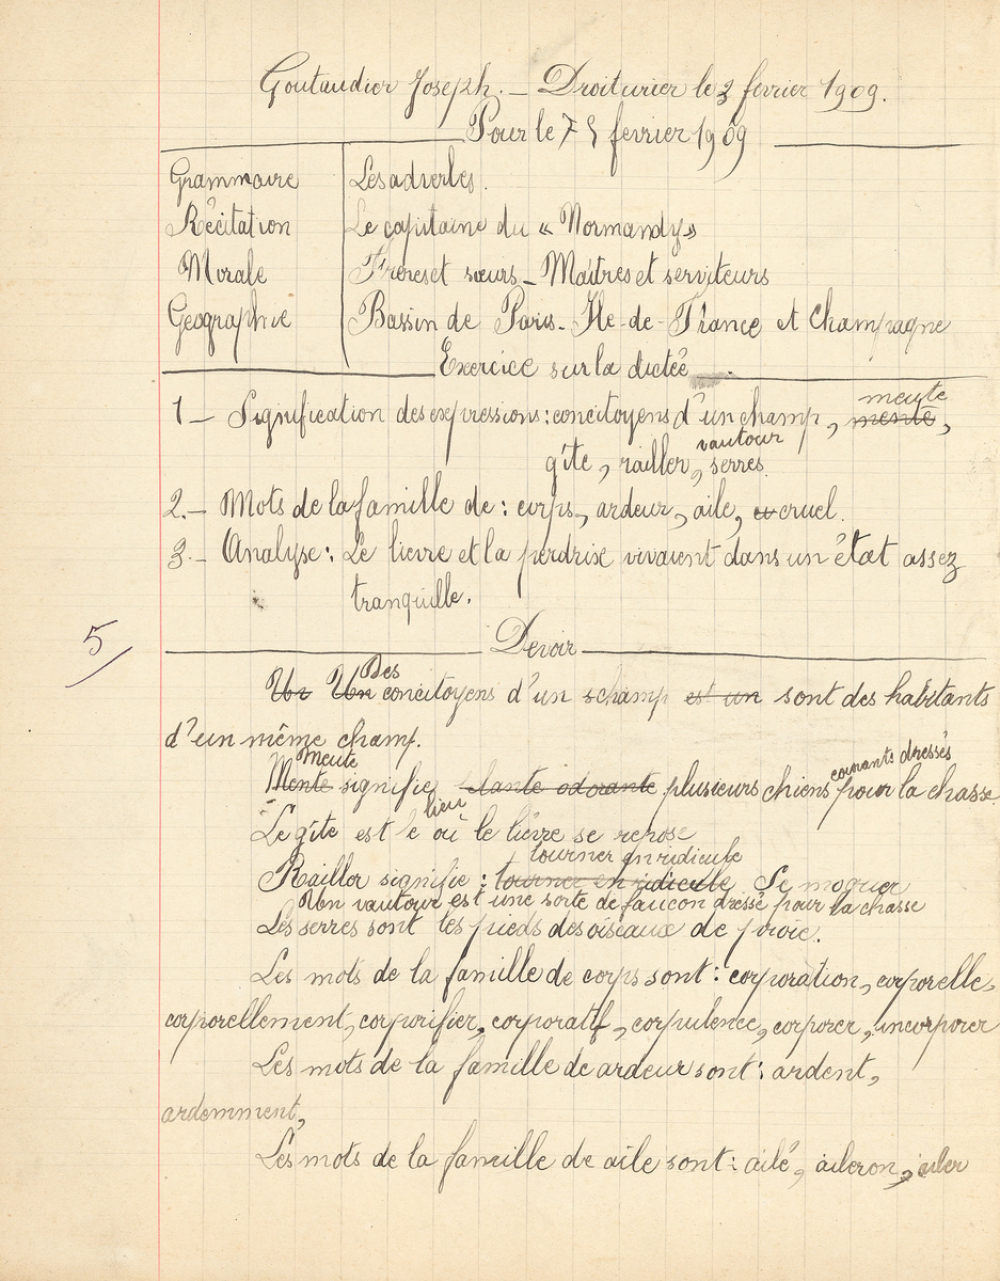 Goutaudier Joseph. — Droiturier le 3 février 1909.
Pour le 5 février 1909
Grammaire Les adverbes.
Récitation Le capitaine du « Normandy »
Morale Frères et sœurs — Maîtres et serviteurs
Géographie Bassin de Paris - Ile-de-France et Champagne
Exercice sur la dictée
meute
1 — Signification des expressions : concitoyens d'un champ, mente,
vautour
gîte, railler, serres.
2. — Mots de la famille de : corps, ardeur, aile, cruel.
3. — Analyse : Le lièvre et la perdrix vivaient dans un état assez
tranquille.
5
Devoir
Des
Un Un concitoyens d'un champ est un sont des habitants
d'un même champ.
Meute courants dressés
Mente signifie plante odorante plusieurs chiens pour la chasse
lieu
Le gîte est le où le lièvre se repose
tourner en ridicule
Railler signifie : tourner en ridicule Se moquer
Un vautour est une sorte de faucon dressé pour la chasse
Les serres sont les pieds des oiseaux de proie.
Les mots de la famille de corps sont : corporation, corporelle,
corporellement, corporifier, corporatif, corpulence, corporer, incorporer
Les mots de la famille de ardeur sont : ardent,
ardemment,
Les mots de la famille de aile sont : ailé, aileron, ailer